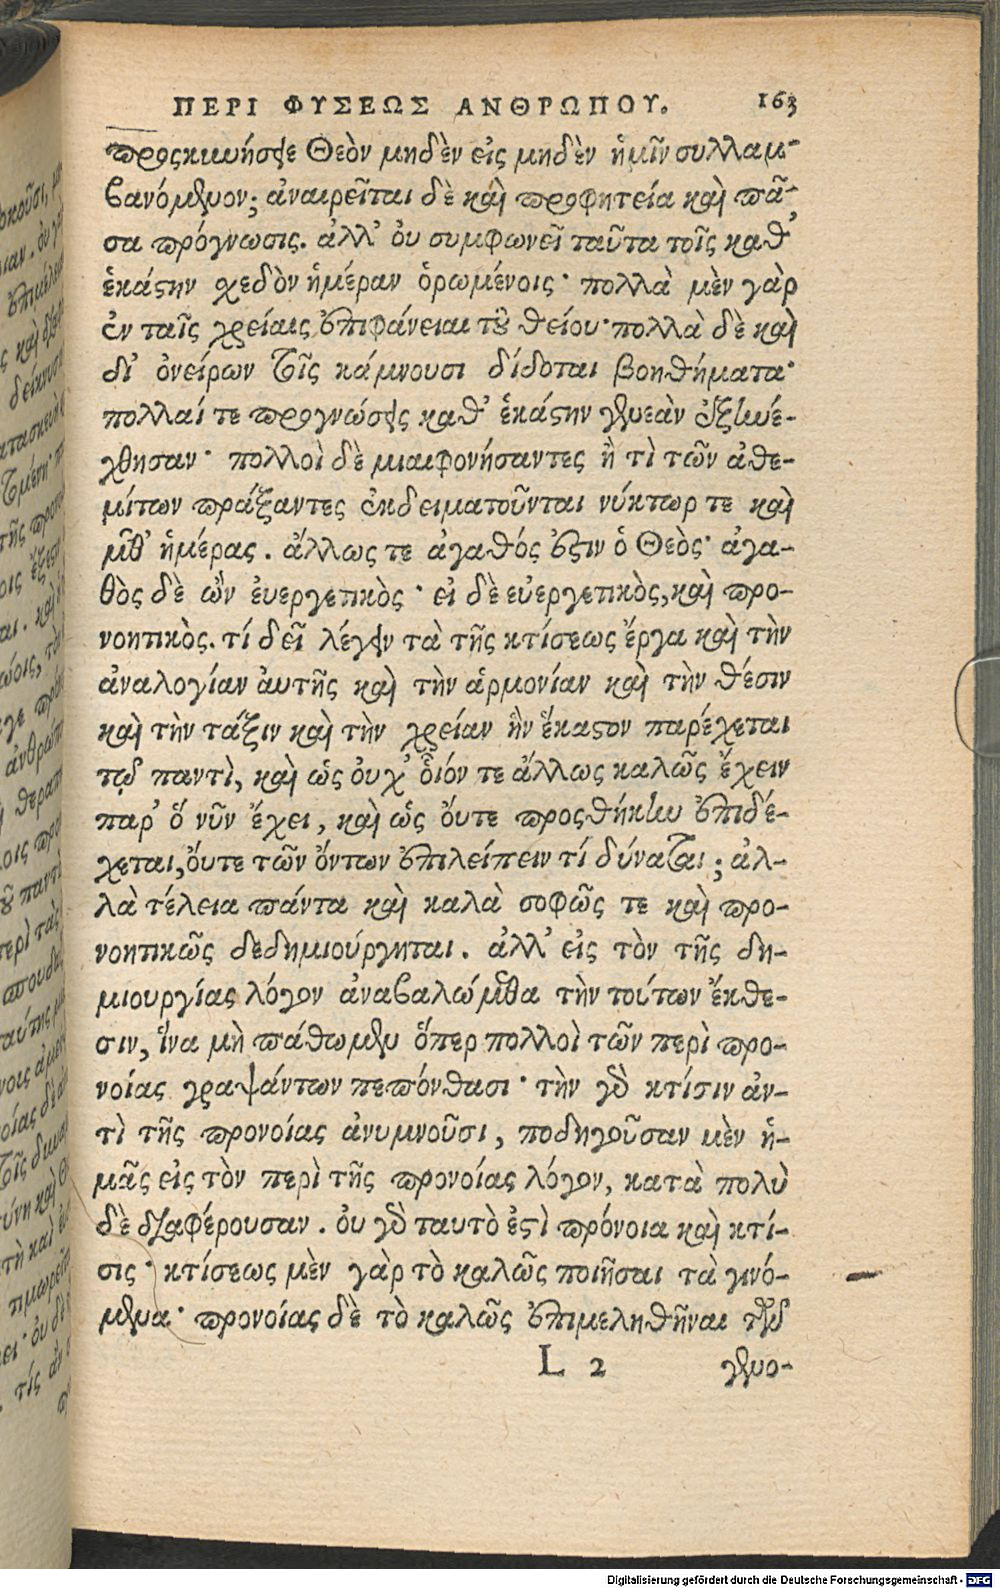 ΠΕΡΙ ΦΥΣΕΩΣ ΑΝΘΡΩΠΟΥ. 163
προςκυνήσειε Θεὸν μηδὲν εἰς μηδὲν ἡμῖν συλλαμ-
βανόμενον; ἀναιρεῖται δὲ καὶ προφητεία καὶ πᾶ-
σα πρόγνωσις. ἀλλ' ὀυ συμφωνεῖ ταῦτα τοῖς καθ'
ἑκάστην σχεδὸν ἡμέραν ὁρωμένοις· πολλὰ μὲν γὰρ
ἐν ταῖς χρείαις ἐπιφάνειαι τοῦ θείου· πολλὰ δὲ καὶ
δι' ὀνείρων τοῖς κάμνουσι δίδοται βοηθήματα·
πολλαί τε προγνώσεις καθ' ἑκάστην γενεὰν ἐξηνέ-
χθησαν· πολλοὶ δὲ μιαιφονήσαντες ἢ τὶ τῶν ἀθε-
μίτων πράξαντες ἐκδειματοῦνται νύκτωρ τε καὶ
μεθ' ἡμέρας. ἄλλως τε ἀγαθός ἐστιν ὁ Θεὸς· ἀγα-
θὸς δὲ ὢν ἐυεργετικὸς· εἰ δὲ εὐεργετικὸς, καὶ προ-
νοητικὸς. τί δεῖ λέγειν τὰ τῆς κτίσεως ἔργα καὶ τὴν
ἀναλογίαν ἀυτῆς καὶ τὴν ἁρμονίαν καὶ τὴν θέσιν
καὶ τὴν τάξιν καὶ τὴν χρείαν ἣν ἕκαστον παρέχεται
τῷ παντὶ, καὶ ὡς ὀυχ' ὅιόν τε ἄλλως καλῶς ἔχειν
παρ' ὅ νῦν ἔχει, καὶ ὡς ὄυτε προςθήκην ἐπιδέ-
χεται, ὄυτε τῶν ὄντων ἐπιλείπειν τί δύναται; ἀλ-
λὰ τέλεια πάντα καὶ καλὰ σοφῶς τε καὶ προ-
νοητικῶς δεδημιούργηται. ἀλλ' εἰς τὸν τῆς δη-
μιουργίας λόγον ἀναβαλώμεθα τὴν τούτων ἔκθε-
σιν, ἵνα μὴ πάθωμεν ὅπερ πολλοὶ τῶν περὶ προ-
νοίας γραψάντων πεπόνθασι· τὴν γὰρ κτίσιν ἀν-
τὶ τῆς προνοίας ἀνυμνοῦσι, ποδηγοῦσαν μὲν ἡ-
μᾶς εἰς τὸν περὶ τῆς προνοίας λόγον, κατὰ πολὺ
δὲ διαφέρουσαν. ὀυ γὰρ ταυτὸ ἐστὶ πρόνοια καὶ κτί-
σις· κτίσεως μὲν γὰρ τὸ καλῶς ποιῆσαι τὰ γινό-
μενα· προνοίας δὲ τὸ καλῶς ἐπιμεληθῆναι τῶν
L 2 γενο-
Digitalisierung gefördert durch die Deutsche Forschungsgemeinschaft - DFG